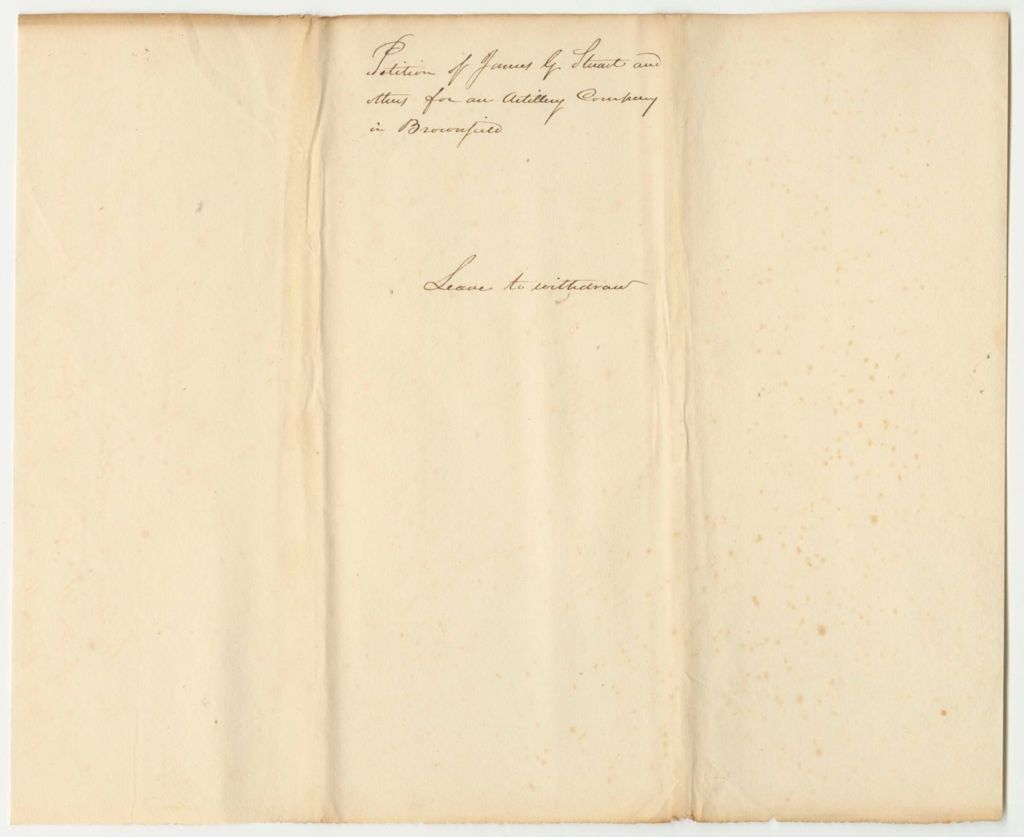 Petition of James G. Stuart and
others for an Artillery Company
in Brownfield
Leave to withdraw